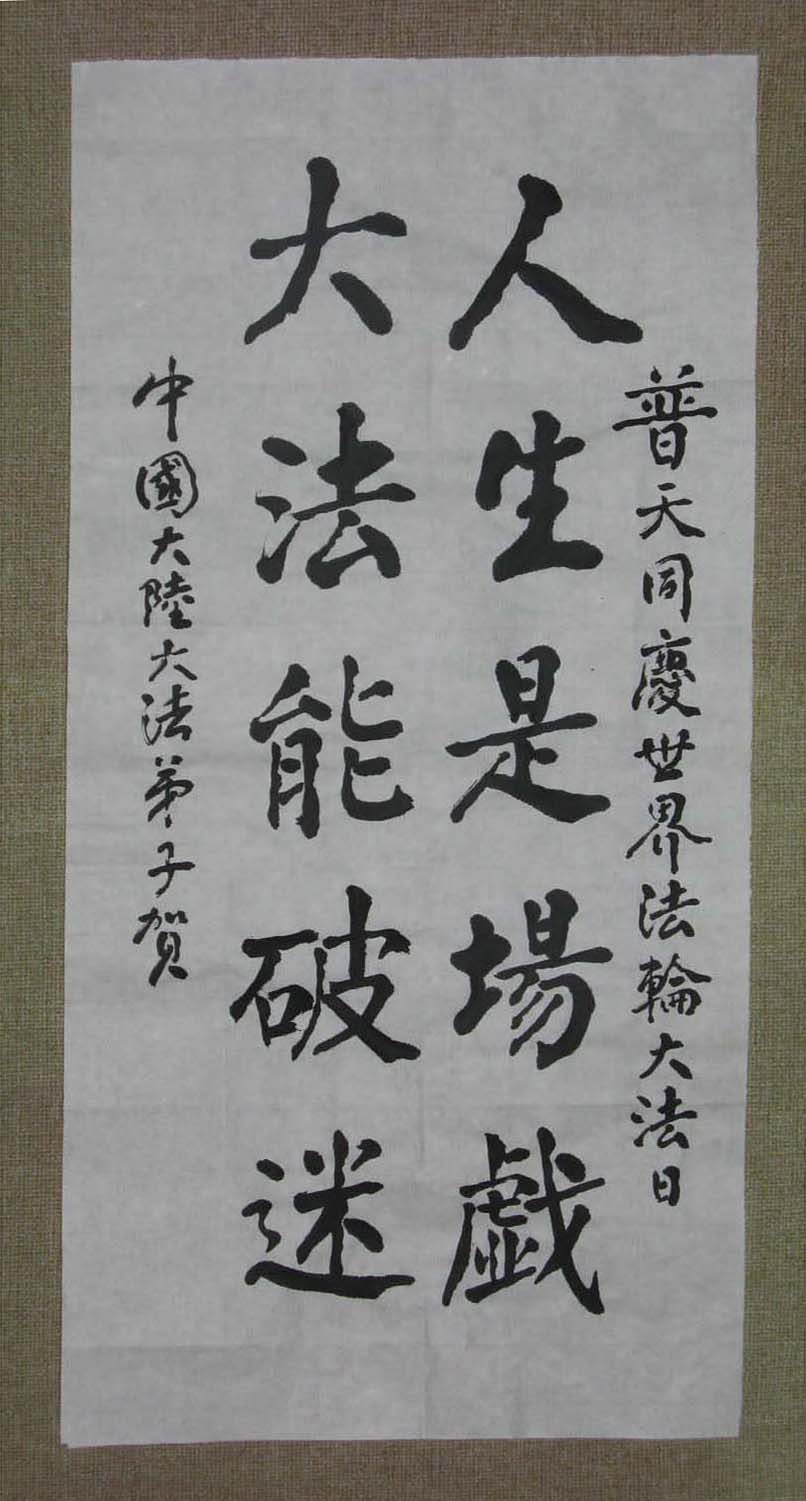 普天同慶世界法輪大法日
人生是場戯
大法能破迷
中國大陸大法弟子賀